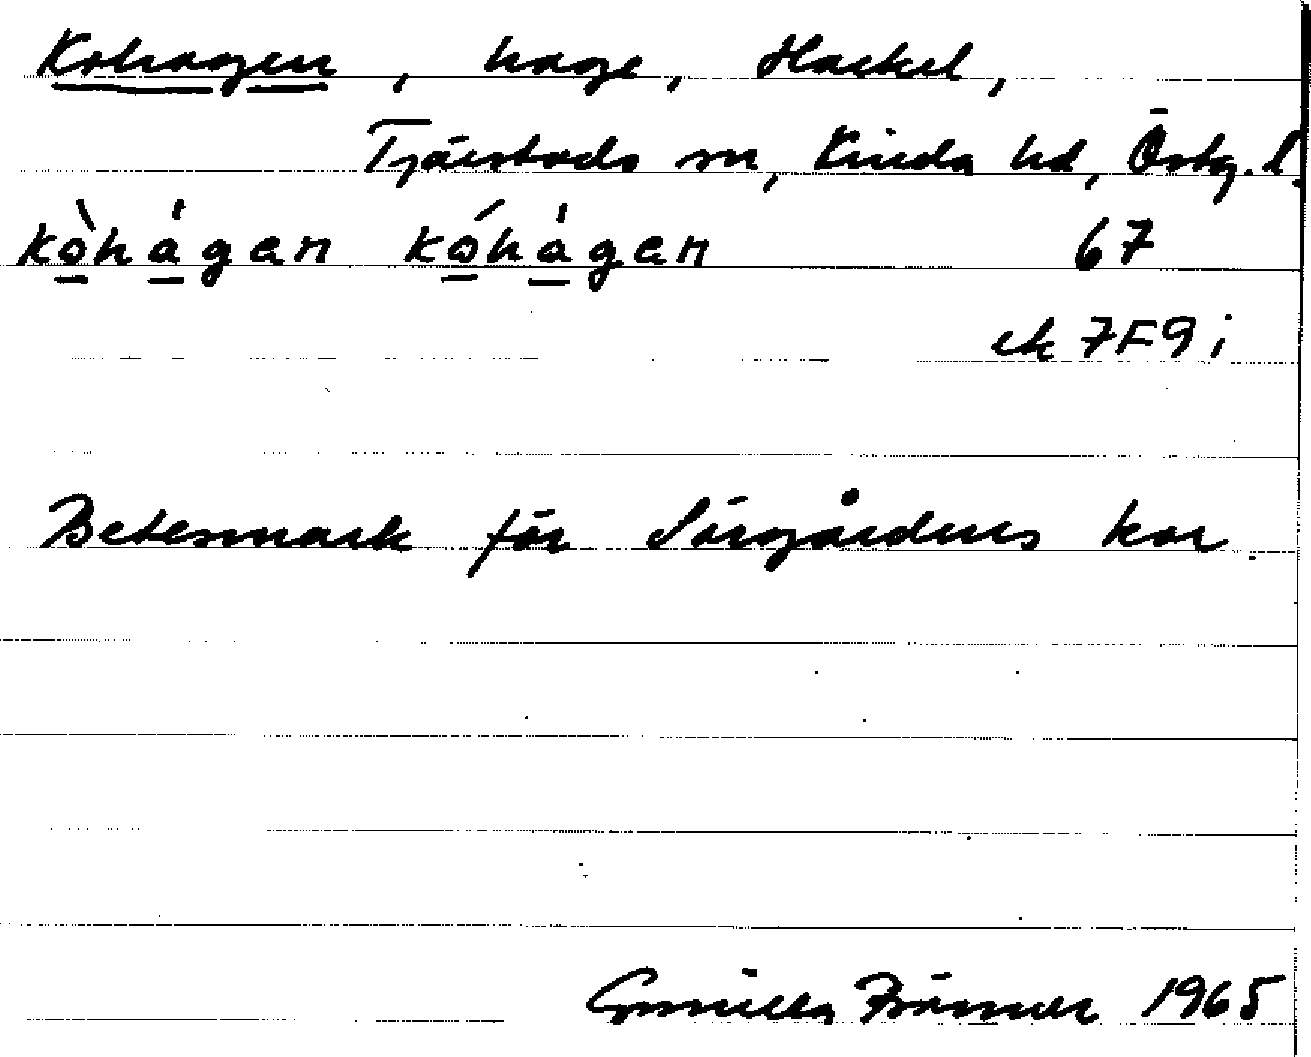 Kohagen, hage, Hackel,
Tjärstads sn, Kinda hd, Östg. l.
kòhágan kóhágan 67
ek 7F9i
Betesmark för Sörgårdens kor.
Gunilla 1965